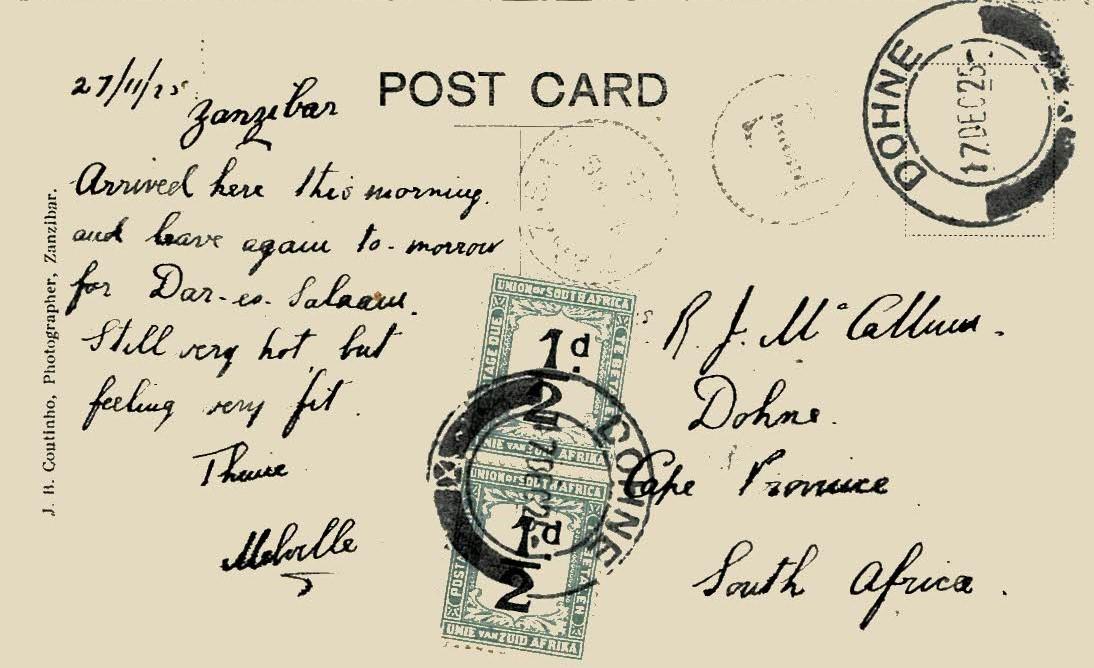 POST CARD
27/11/25
Zanzibar
Arrived here this morning.
and leave again to-morrow
for Dar-es-Salaam.
Still very hot but
feeling very fit.
Melville
J. B. Coutinho, Photographer, Zanzibar.
DOHNE
17 DEC 25
T
UNION OF SOUTH AFRICA
POSTAGE DUE
TE BETALEN
1/2d.
UNIE VAN ZUID AFRIKA
UNION OF SOUTH AFRICA
POSTAGE DUE
TE BETALEN
1/2d.
UNIE VAN ZUID AFRIKA
DOHNE
R. J. McCallum.
Dohne.
Cape Province
South Africa.